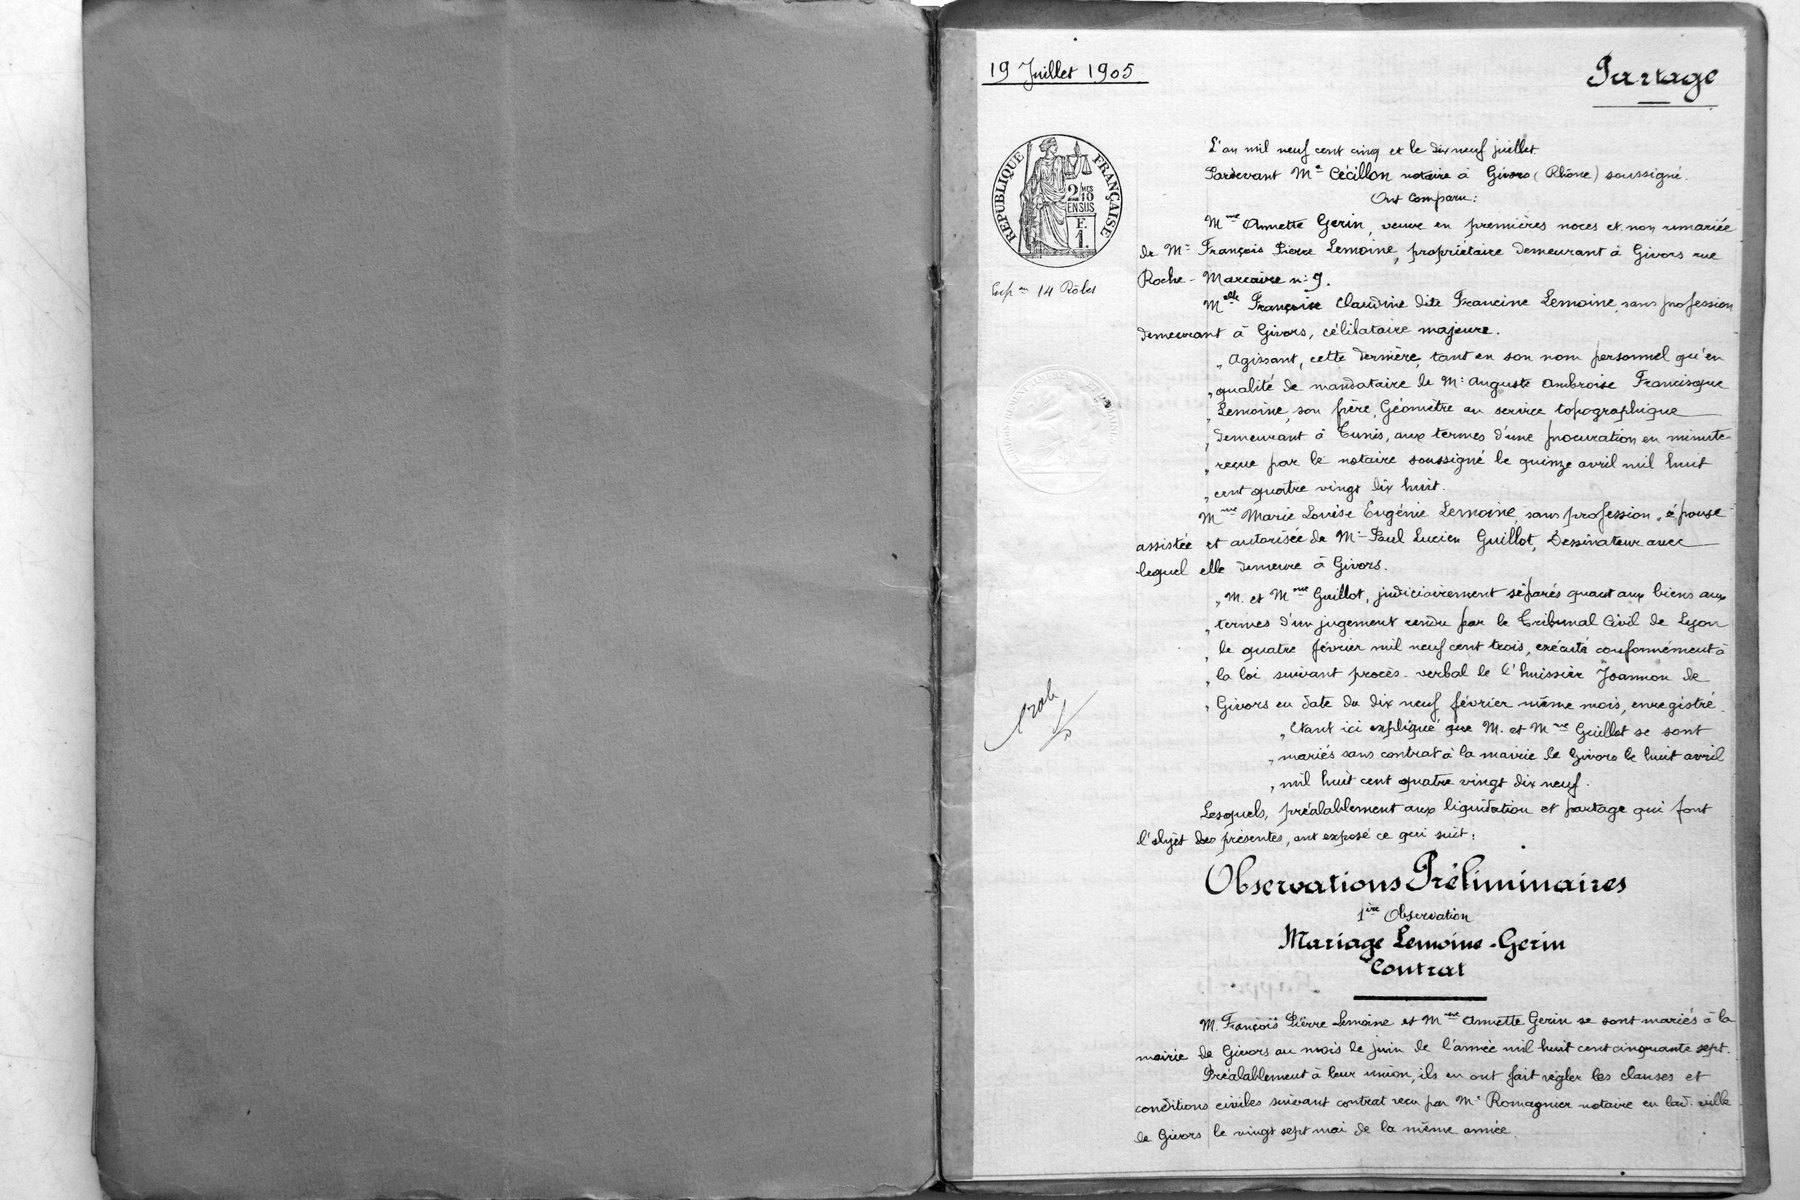 19 Juillet 1905
Partage
RÉPUBLIQUE FRANÇAISE
2/10 MES
EN SUS
F.
1.
Exp on 14 Rôles
L'an mil neuf cent cinq et le dix neuf juillet
Pardevant Me Cécillon notaire à Givors (Rhône) soussigné.
Ont comparu:
Mme Annette Gerin, veuve en premières noces et non remariée
de Mr François Pierre Lemoine, propriétaire demeurant à Givors rue
Roche-Marcaire no 9.
Melle Françoise Claudine dite Francine Lemoine, sans profession
demeurant à Givors, célibataire majeure.
„ Agissant, cette dernière, tant en son nom personnel qu'en
„ qualité de mandataire de Mr Auguste Ambroise Francisque
„ Lemoine, son frère, Géomètre au service topographique
„ demeurant à Tunis, aux termes d'une procuration en minute
„ reçue par le notaire soussigné le quinze avril mil huit
„ cent quatre vingt dix huit.
Mme Marie Louise Eugénie Lemoine, sans profession, épouse
assistée et autorisée de Mr Paul Lucien Guillot, Dessinateur avec
lequel elle demeure à Givors.
„ M. et Mme Guillot, judiciairement séparés quant aux biens aux
„ termes d'un jugement rendu par le Tribunal Civil de Lyon
„ le quatre février mil neuf cent trois, exécuté conformément à
„ la loi suivant procès-verbal de l'huissier Joannon de
„ Givors en date du dix neuf février même mois, enregistré.
„ Etant ici expliqué que M. et Mme Guillot se sont
„ mariés sans contrat à la mairie de Givors le huit avril
„ mil huit cent quatre vingt dix neuf.
Lesquels, préalablement aux liquidation et partage qui font
l'objet des présentes, ont exposé ce qui suit:
Observations Préliminaires
1ère Observation
Mariage Lemoine-Gerin
Contrat
M. François Pierre Lemoine et Mme Annette Gerin se sont mariés à la
mairie de Givors au mois de juin de l'année mil huit cent cinquante sept.
Préalablement à leur union, ils en ont fait régler les clauses et
conditions civiles suivant contrat reçu par Me Romagnier notaire en lad. ville
de Givors le vingt sept mai de la même année.